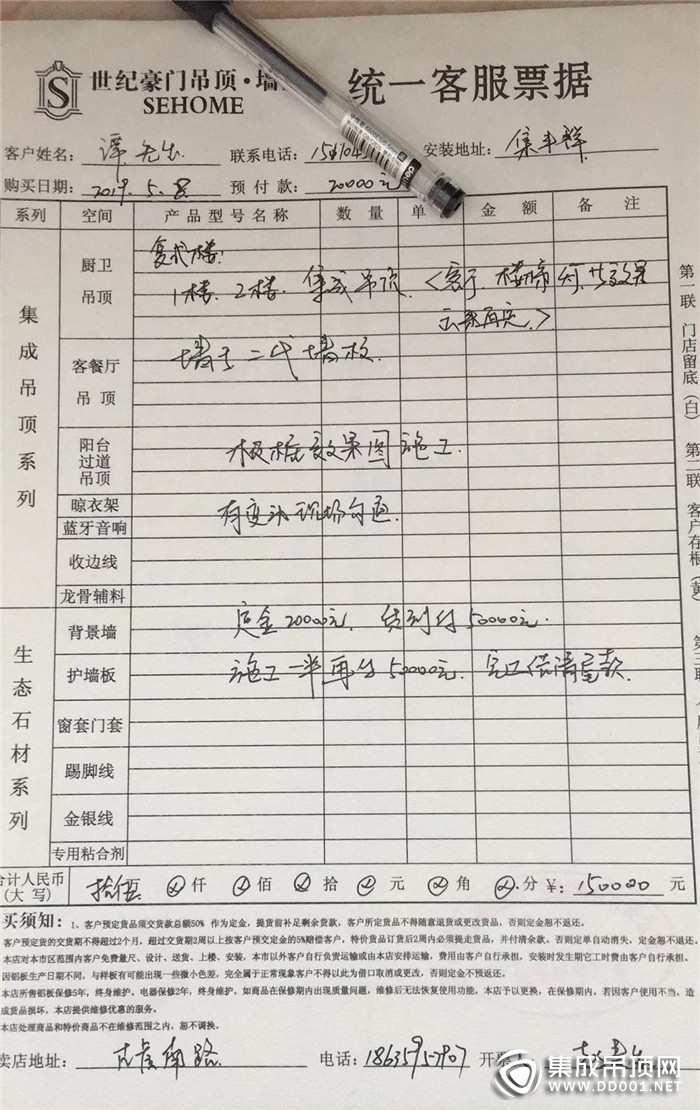 世纪豪门吊顶·墙
SEHOME
统一客服票据
客户姓名：谭先生 联系电话： 安装地址：集丰祥
购买日期：2019.5.8 预付款：20000元
系列 空间 产品型号名称 数量 单 金额 备注
集成吊顶系列
厨卫吊顶
复式楼：
1楼、2楼、集成吊顶、<客厅、楼梯间，
再定.>
客餐厅吊顶
二代墙板.
阳台过道吊顶
根据效果图施工.
晾衣架
有变动现场勾通.
蓝牙音响
收边线
龙骨辅料
生态石材系列
背景墙
定金20000元. 货到付50000元.
护墙板
施工一半再付50000元. 完工付清尾款.
窗套门套
踢脚线
金银线
专用粘合剂
第一联 门店留底（白） 第二联 客户存根（黄） 第三联
合计人民币（大写） 拾伍 仟 佰 拾 元 角 分 ¥：150000 元
买须知：1、客户预定货品须交货款总额50% 作为定金，提货前补足剩余货款。客户所定货品不得随意退货或更改货品，否则定金恕不返还。
客户预定货的交货期不得超过2个月，超过交货期2周以上按客户预交定金的5%赔偿客户，特价货品订货后2周内必须提走货品，并付清余款，否则定单自动消失，定金恕不退还。
本店对本市区范围内客户免费量尺、设计、送货、上楼、安装，本市以外客户自行负责运输或由本店安排运输，费用由客户自行承担，安装时发生期它工时费由客户自行承担。
因铝板生产日期不同，与样板有可能出现一些微小色差，完全属于正常现象客户不得以此为借口取消或更改，否则定金不预返还。
本店所售铝板保修5年，终身维护。电器保修2年，终身维护。如商品在保修期内出现质量问题，维修后无法恢复使用功能，本店予以更换，在保修期内，若因客户使用不当、造
成货品损坏，本店提供维修优惠的服务。
本店处理商品和特价商品不在维修范围之内，恕不调换。
卖店地址： 南路 电话： 开票人
集成吊顶网
WWW.DD001.NET